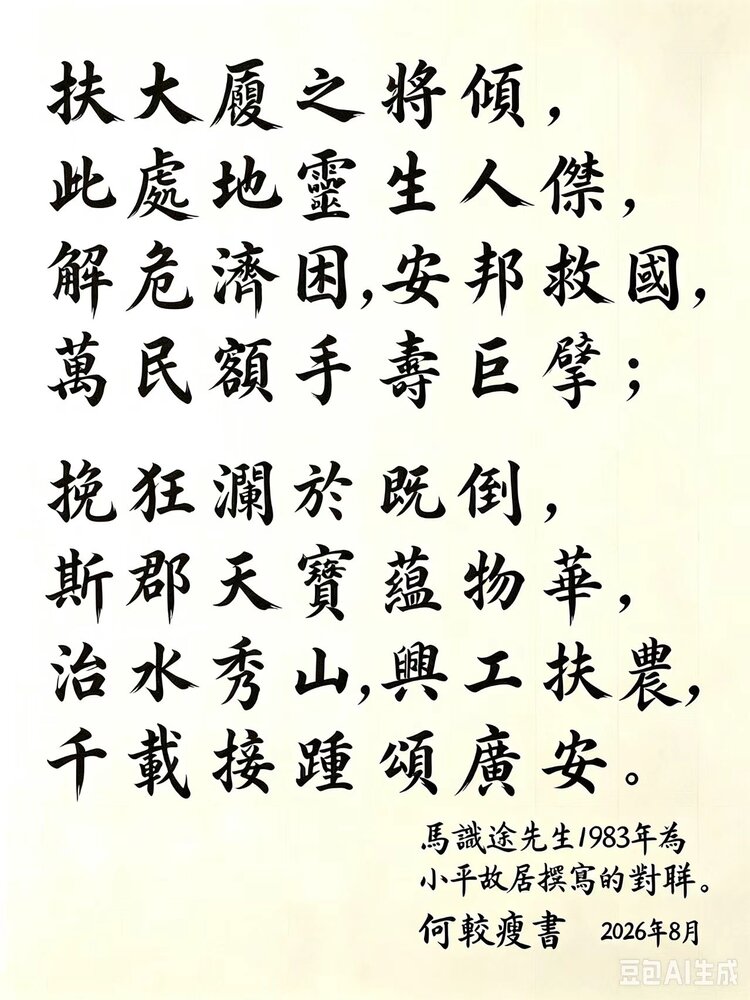 扶大履之將傾，
此處地靈生人傑，
解危濟困,安邦救國，
萬民額手壽巨擘；
挽狂瀾於既倒，
斯郡天寶蘊物華，
治水秀山,興工扶農，
千載接踵頌廣安。
馬識途先生1983年為
小平故居撰寫的對聯。
何較瘦書 2026年8月
豆包AI生成